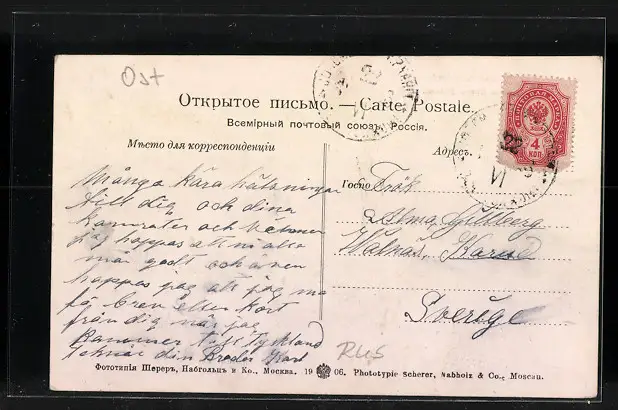 Ost
Открытое письмо. — Carte Postale.
Всемірный почтовый союзъ. Россія.
Мѣсто для корреспонденціи
Адресъ.
4
КОП
Många kära hälsningar
till dig och dina
kamrater och
jag hoppas att ni alla
mår godt och även
hoppas jag att jag må
få brev eller kort
från dig när jag
till Tyskland
Teknar din Broder Karl
Госпо Frök
Alma Gillberg
Sverige
RUS
Фототипія Шереръ, Набгольцъ и Ко., Москва. 19 06. Phototypie Scherer, Nabholz & Co., Moscou.